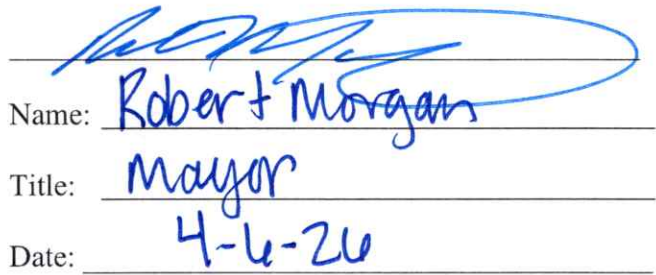 Name: Robert Morgan
Title: Mayor
Date: 4-6-26